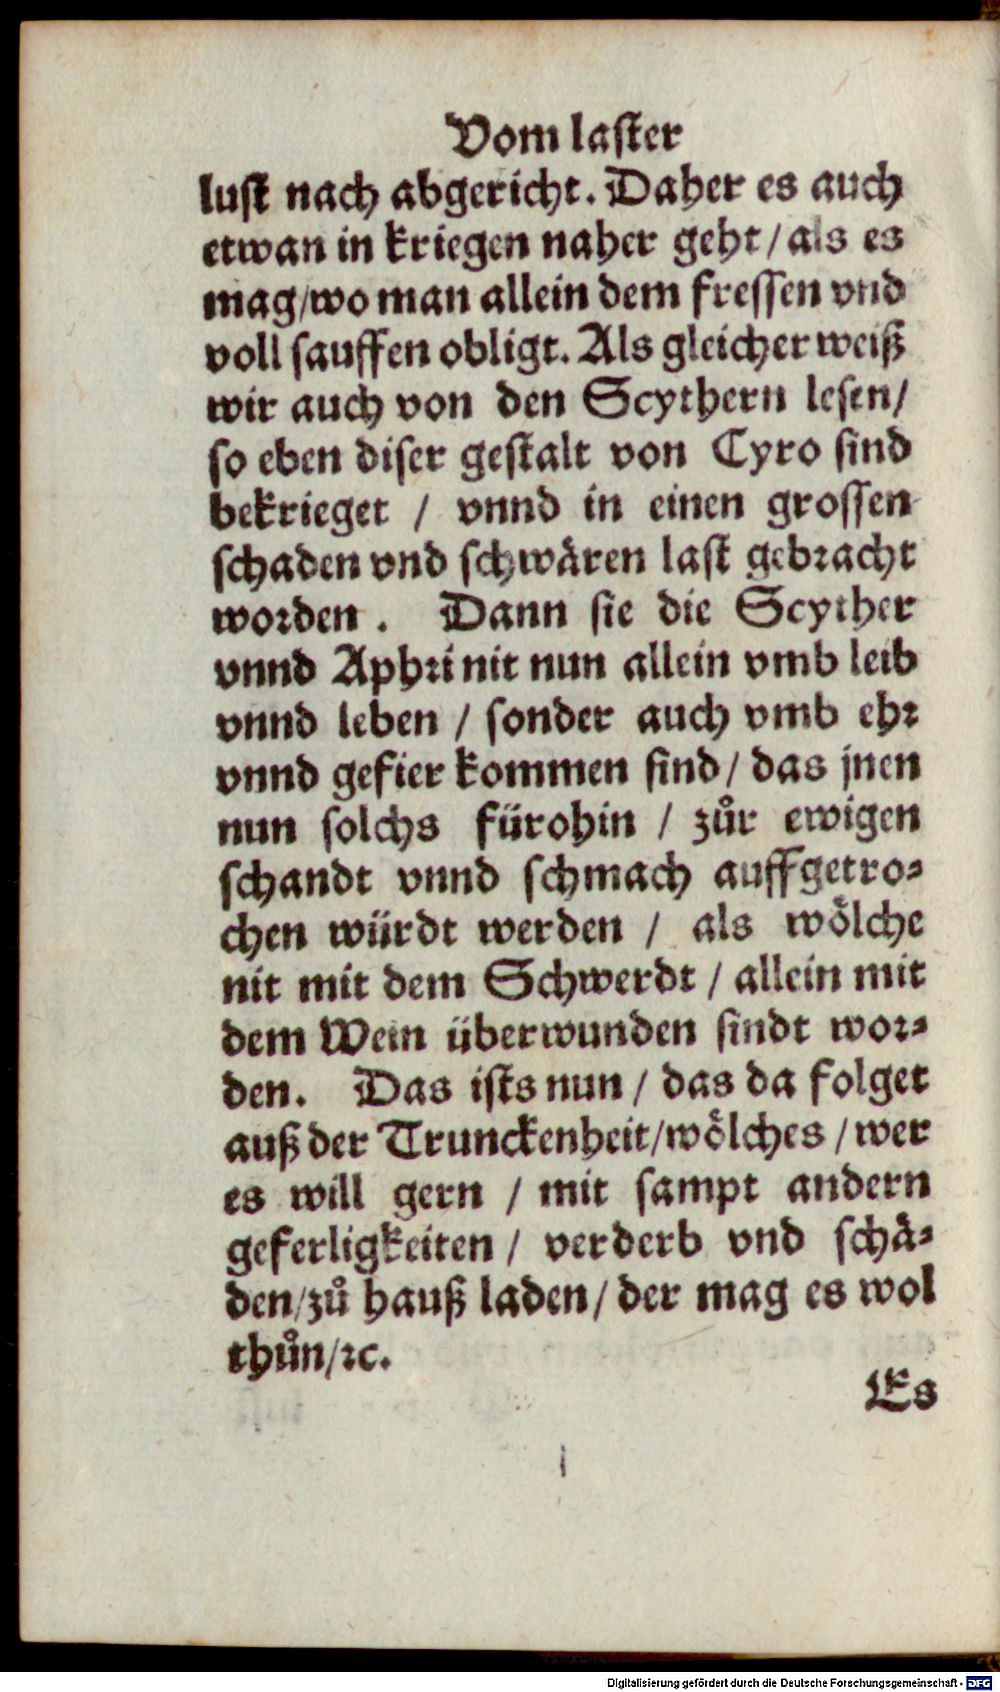 Vom laster
lust nach abgericht. Daher es auch
etwan in kriegen naher geht / als es
mag / wo man allein dem fressen vnd
voll sauffen obligt. Als gleicher weiß
wir auch von den Scythern lesen /
so eben diser gestalt von Cyro sind
bekrieget / vnnd in einen grossen
schaden vnd schwären last gebracht
worden . Dann sie die Scyther
vnnd Aphri nit nun allein vmb leib
vnnd leben / sonder auch vmb ehr
vnnd gefier kommen sind / das jnen
nun solchs fürohin / zůr ewigen
schandt vnnd schmach auffgetro-
chen würdt werden / als wölche
nit mit dem Schwerdt / allein mit
dem Wein überwunden sindt wor-
den. Das ists nun / das da folget
auß der Trunckenheit / wölches / wer
es will gern / mit sampt andern
geferligkeiten / verderb vnd schä-
den / zů hauß laden / der mag es wol
thůn / ꝛc.
Es
Digitalisierung gefördert durch die Deutsche Forschungsgemeinschaft - DFG